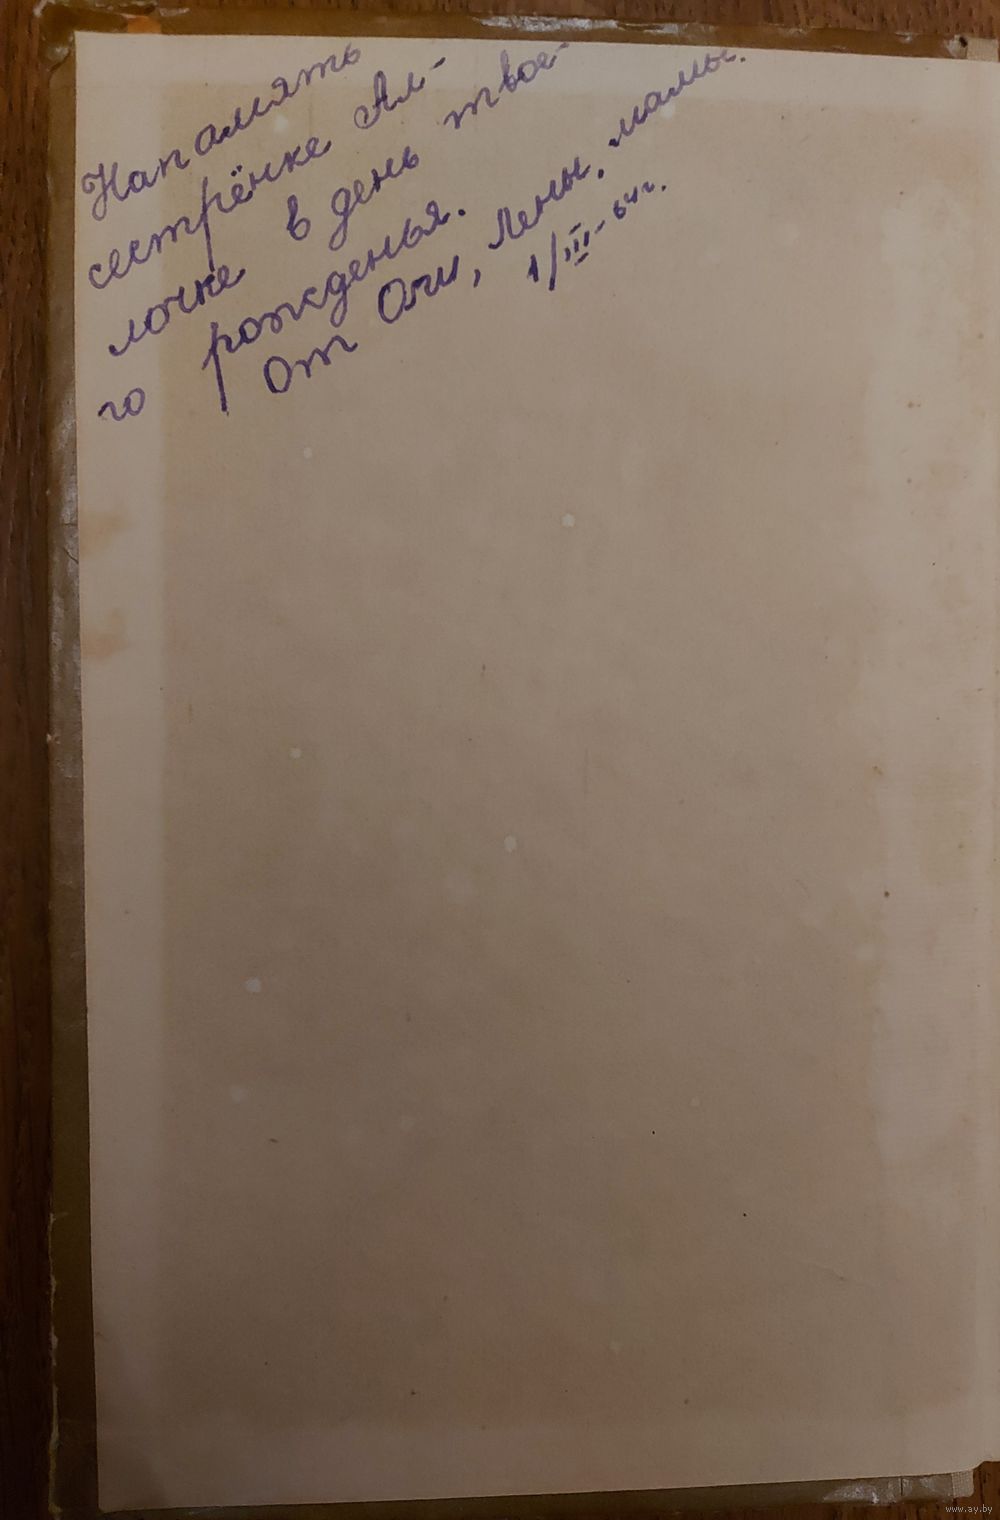 На память
сестрёнке Ал-
лочке в день твое-
го рожденья.
От Оли, Лены, мамы.
1/III-64 г.
www.ay.by